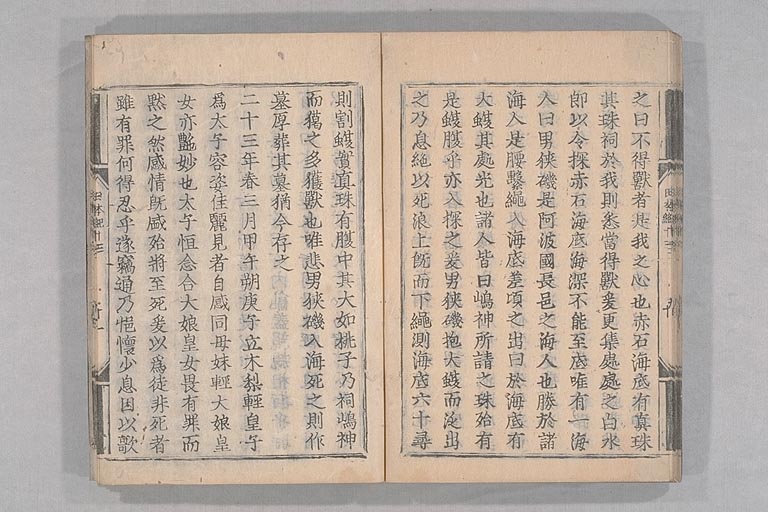 之曰不得獸者是我之心也赤石海底有真珠
其珠祠於我則悉當得獸爰更集處處之白水
即以令探赤石海底海深不能至底唯有一海
人曰男狹磯是阿波國長邑之海人也勝於諸
海人是腰繋繩入海底差頃之出曰於海底有
大鰒其處光也諸人皆曰嶋神所請之珠殆有
是鰒腹乎亦入探之爰男狹磯抱大鰒而泛出
之乃息絶以死浪上既而下繩測海底六十尋
則割鰒實真珠有腹中其大如桃子乃祠嶋神
而獵之多獲獸也唯悲男狹磯入海死之則作
墓厚葬其墓猶今存之
二十三年春三月甲午朔庚子立木梨輕皇子
爲太子容姿佳麗見者自感同母妹輕大娘皇
女亦艶妙也太子恒念合大娘皇女畏有罪而
黙之然感情既盛殆將至死爰以爲徒非死者
雖有罪何得忍乎遂竊通乃悒懷少息因以歌